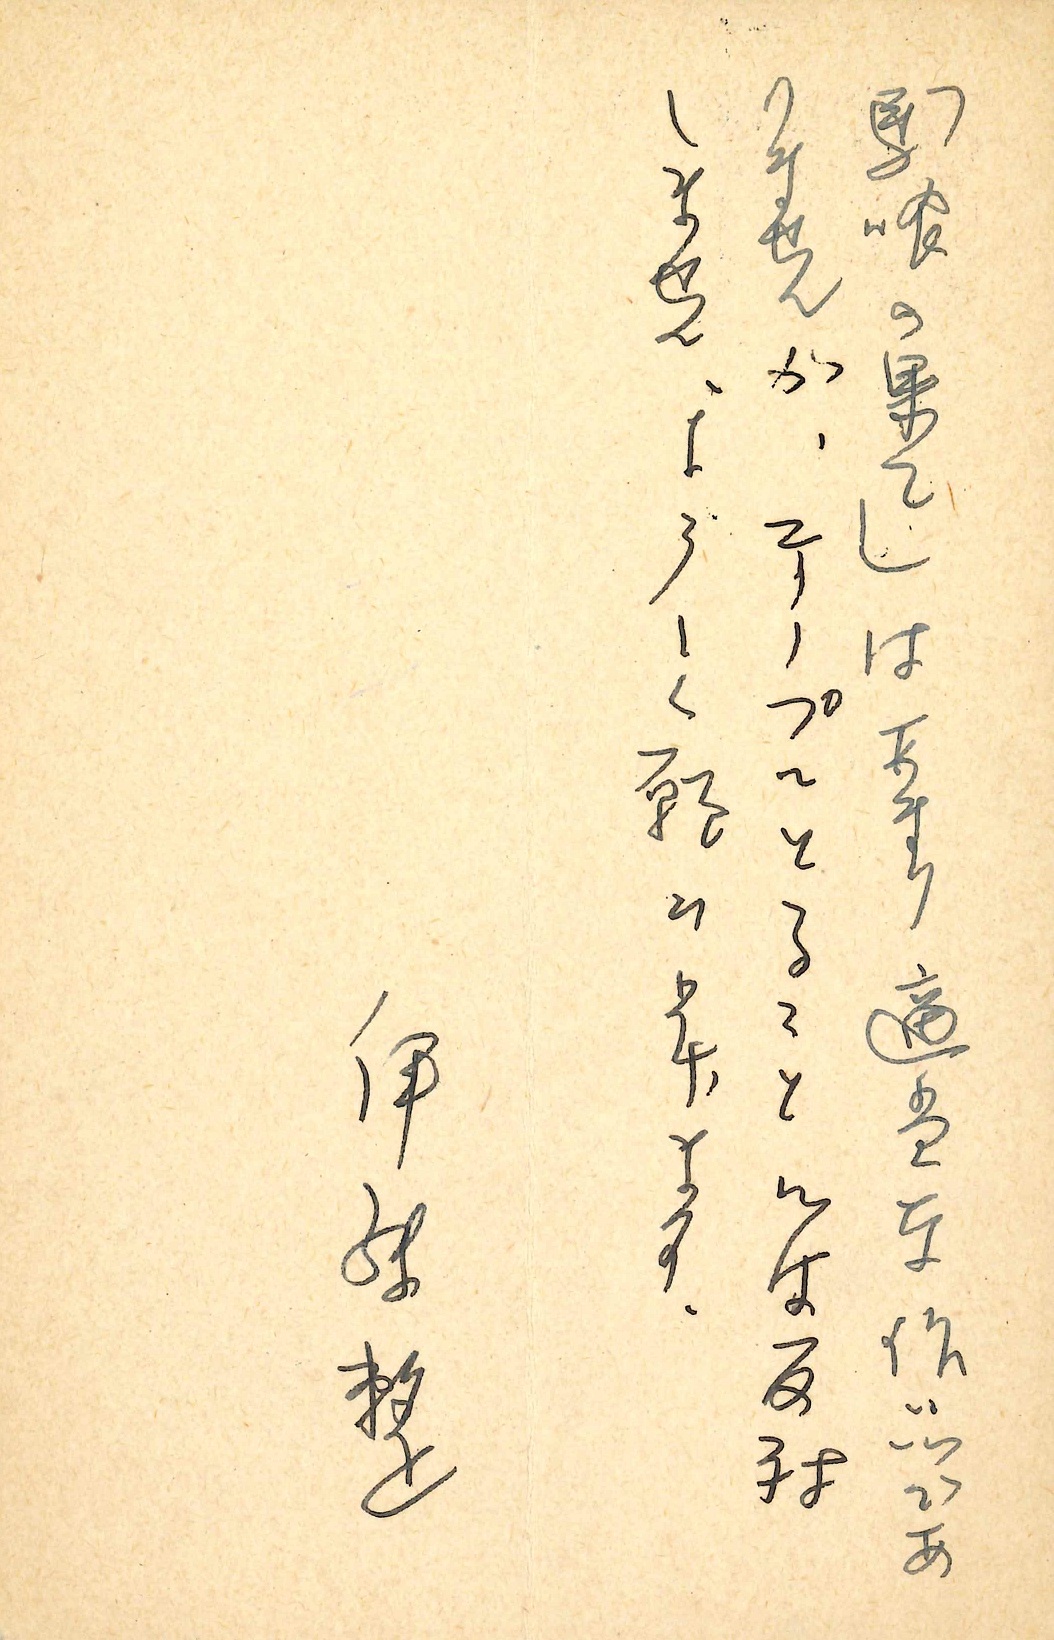 「馬喰の果て」はあまり適当な作品であ
りませんが、テープにとることには反対
しません、よろしく願ひ上げます。
伊藤整